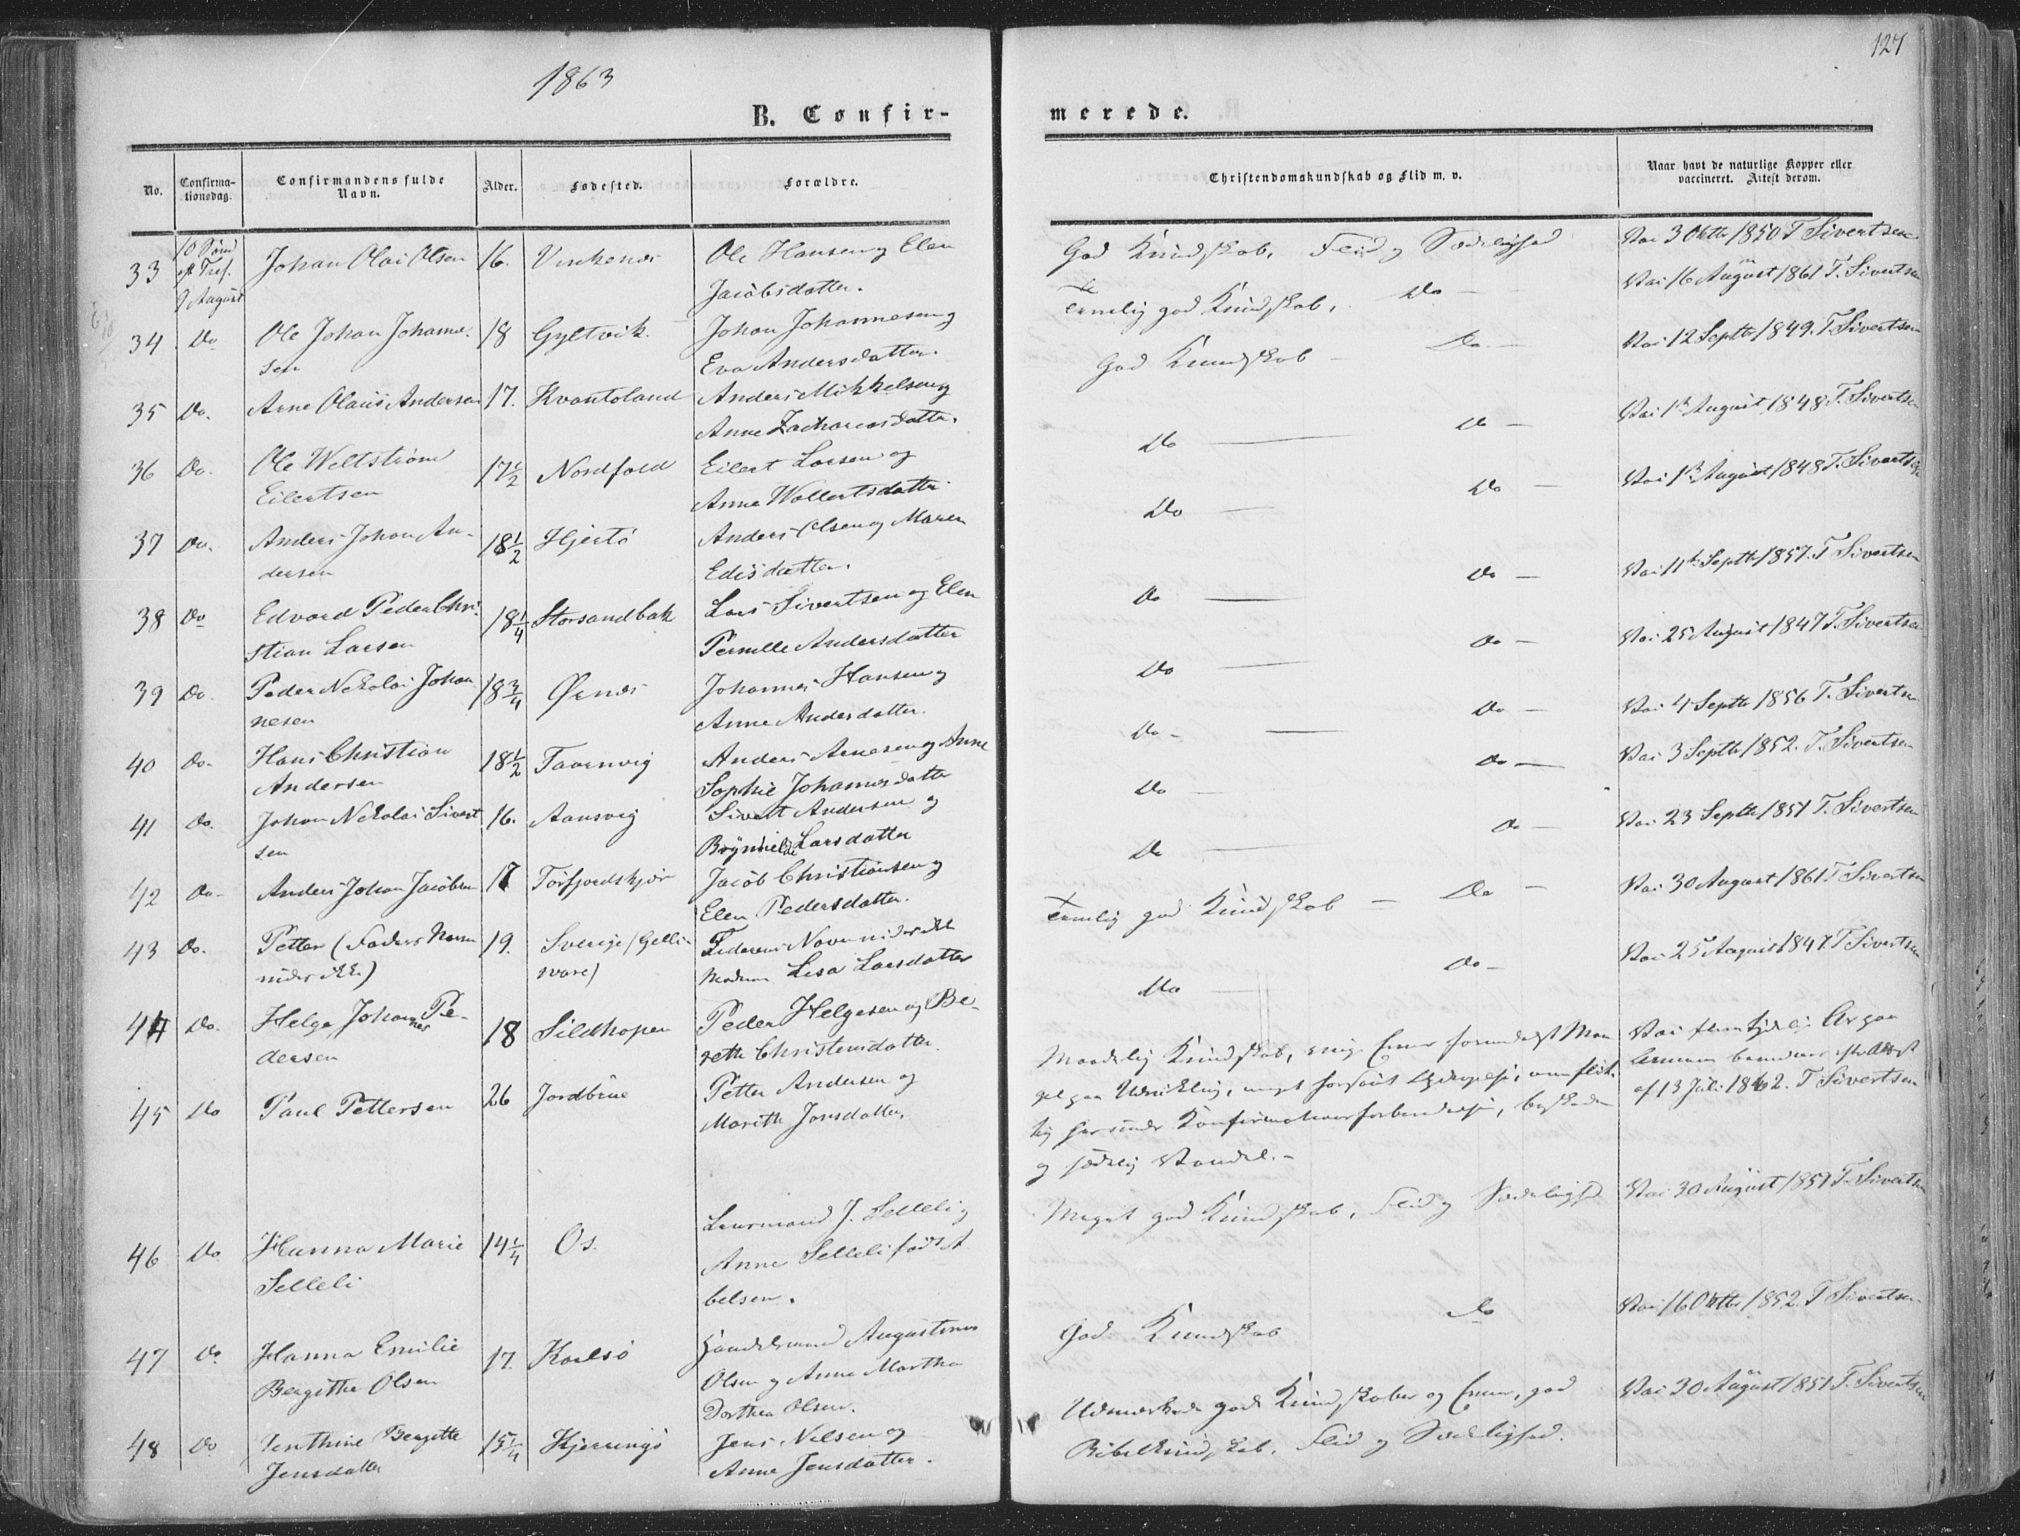 1863
127
B. Confir-
merede.
No.
Confirma-
tionsdag.
Confirmandens fulde
Navn.
Alder.
Fødested.
Forældre.
Christendomskundskab og Flid m. v.
Naar havt de naturlige Kopper eller
vaccineret. Attest derom.
33 10 Sønd Johan Olai Olsen 16. Ole Hansen og Elen
9 August Jacobsdatter.
God Kundskab, Flid og Sædelighed
Vac. 3 Oktb 1850 T Sivertsen
34 Do Ole Johan Johanne- 18 Gyltvik. Johan Johannesen og
sen Eva Andersdatter.
Temelig god Kundskab, Do —
Vac. 16 August 1861 T. Sivertsen
35 Do. Arne Olaus Andersen 17. Kvantoland Anders Mikkelsen og
Anne Zachariasdatter.
God Kundskab — Do —
Vac. 12 Septb 1849. T. Sivertsen
36 Do. Ole Weltstrøm 17½ Nordfold Eilert Larsen og
Eilertsen Anne Wollertsdatter
Do — Do —
Vac. 1 August 1848 T. Sivertsen
37 Do. Anders Johan An- 18½ Hjertø Anders Olsen og Maren
dersen Edisdatter.
Do — Do —
Vac. 1 August 1848 T. Sivertsen
38 Do Edvard Peder Chri- 18¼ Storsandbak Lars Sivertsen og Elen
stian Larsen Pernille Andersdatter
Do — Do —
Vac. 11 Septb 1857. T Sivertsen
39 Do. Peder Nikolai Johan 18¾ Ørnes Johannes Hansen og
nesen Anne Andersdatter.
Do — Do —
Vac. 25 August 1847 T. Sivertsen
40 Do. Hans Christian 18½ Anders Arnesen og Anne
Andersen Sophie Johannesdatter
Do — Do —
Vac. 4 Septb 1856 T. Sivertsen
41 Do. Johan Nikolai Sivert 16. Aansvig Sivert Andersen og
sen Larsdatter
Do — Do —
Vac. 3 Septb 1852. T. Sivertsen
42 Do. Anders Johan Jacobsen 17 Torfjordskjær Jacob Christiansen og
Elen Pedersdatter.
Do — Do —
Vac. 23 Septb 1851 T. Sivertsen
43 Do. Petter (Faders Navn 19. Sverige (Gelli- Faderens Navn vides ikke
vides ikke) vare) Moderen Lisa Larsdatter
Temelig god Kundskab — Do —
Vac. 30 August 1861 T Sivertsen
44 Do. Helge Johannes Pe- 18 Sildhopen Peder Helgesen og Be-
dersen reth Christensdatter.
Do — Do —
Vac. 25 August 1847. T Sivertsen
45 Do Paul Pettersen 26 Jordbrue Petter Andersen og
Marith Jonsdatter.
Maadelig Kundskab,
Konfirmationsforberedelse,
og sædelig Vandel. —
af 13 Juli 1862. T Sivertsen
46 Do Hanna Marie 14¼ Os. Lensmand J. Selleli og
Selleli Anne Selleli født A
belsen.
Meget god Kundskab, Flid og Sædelighed
Vac. 30 August 1851 T. Sivertsen
47 Do Hanna Emilie 17. Karlsø Handelsmand Augustinus
Bergitha Olsen Olsen og Anne Martha
Dorthea Olsen.
God Kundskab Do
Vac. 16 Oktbr 1852. T Sivertsen
48 Do Bergitte 15¼ Kjerringø Jens Nilsen og
Jensdatter Anne Jensdatter.
Udmærkede gode Kundskaber og Evner, god
Bibelkundskab, Flid og Sædelighed.
Vac. 30 August 1851 T. Sivertsen